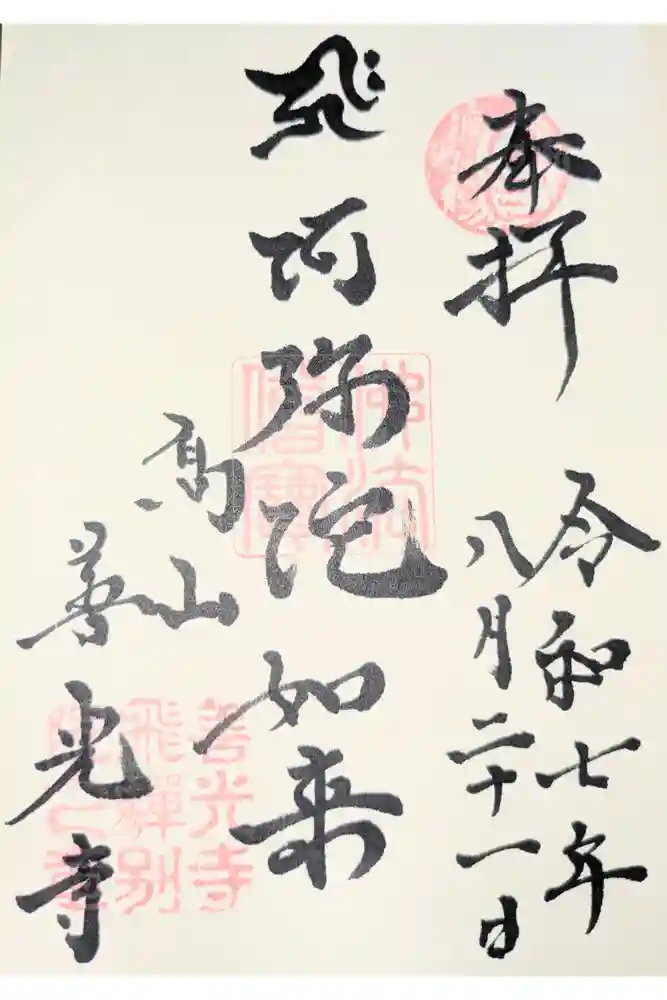 奉拝
令和七年
八月二十一日
阿弥陀如来
高山
善光寺
佛法
僧寶
善光寺
飛騨別